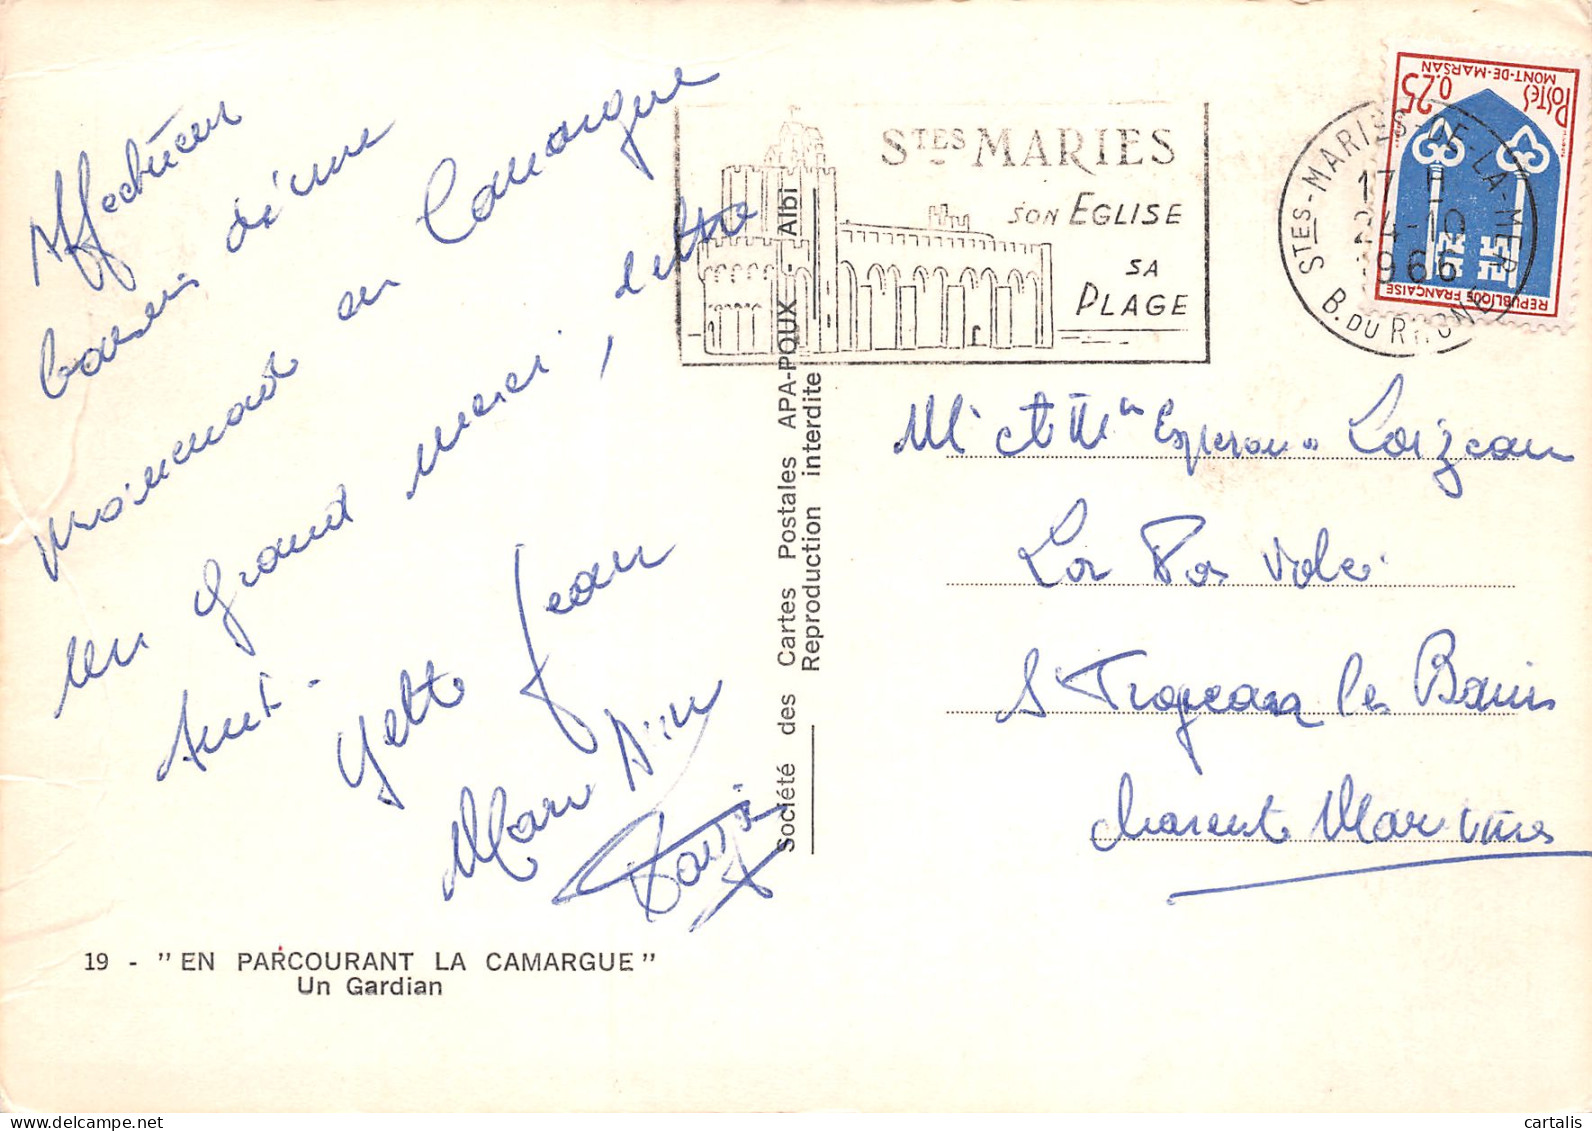 Affectueux
baisers d'une
promenade en Camargue
un grand merci, lettre
suit.
Yette Jean
Marc
19 - "EN PARCOURANT LA CAMARGUE"
Un Gardian
Société des Cartes Postales APA-POUX - Albi
Reproduction interdite
STES MARIES
SON EGLISE
SA
PLAGE
STES-MARIES-DE-LA-MER
17 H
24-10
1966
B. DU RHONE
POSTES
0.25
MONT-DE-MARSAN
REPUBLIQUE FRANÇAISE
Mr et Mme Loizeau
La Pas
St Trojean les Bains
Charente Maritime
cartalis
delcampe.net